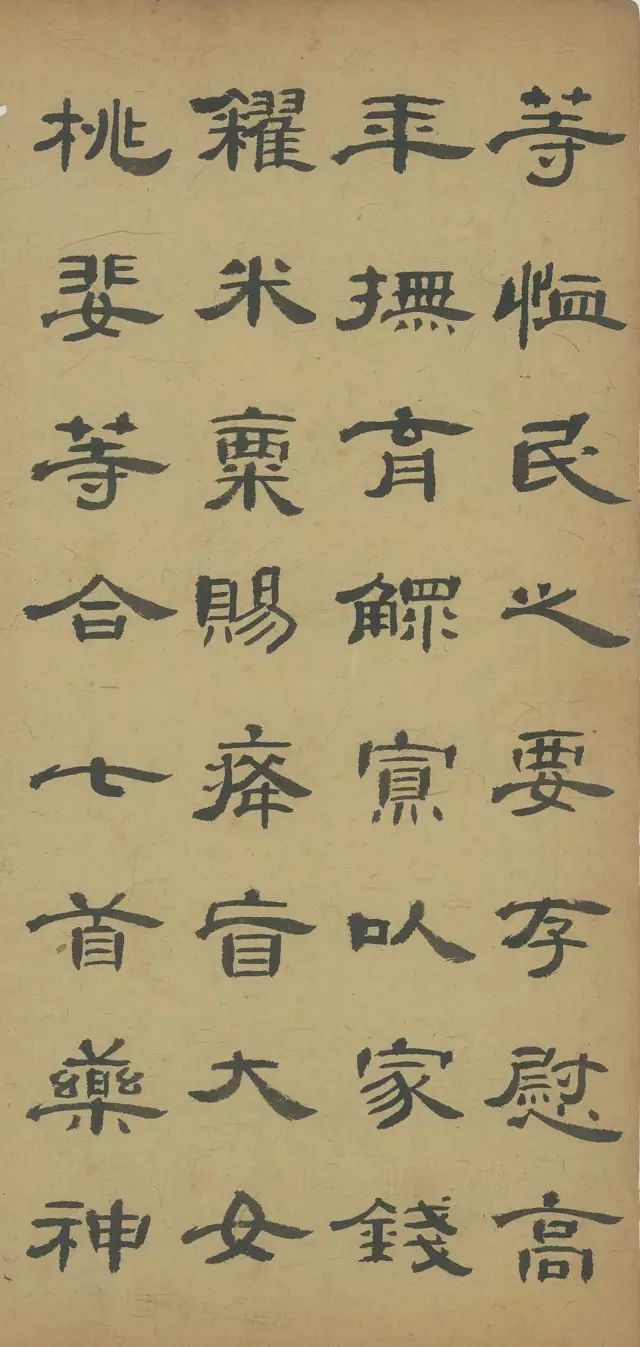 等恤民之要存慰高
年撫育鰥寡以家錢
糴米粟賜癃盲大女
桃婓等合七首藥神